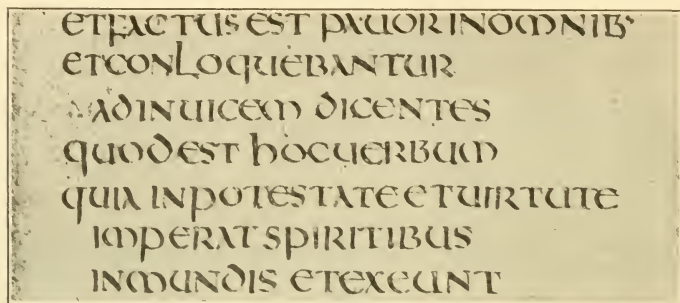 ETFACTUSEST PAUORINOMNIB·
ETCONLOQUEBANTUR
ADINUICEM DICENTES
QUODEST HOCUERBUM
QUIA INPOTESTATEETUIRTUTE
IMPERAT SPIRITIBUS
INMUNDIS ETEXEUNT